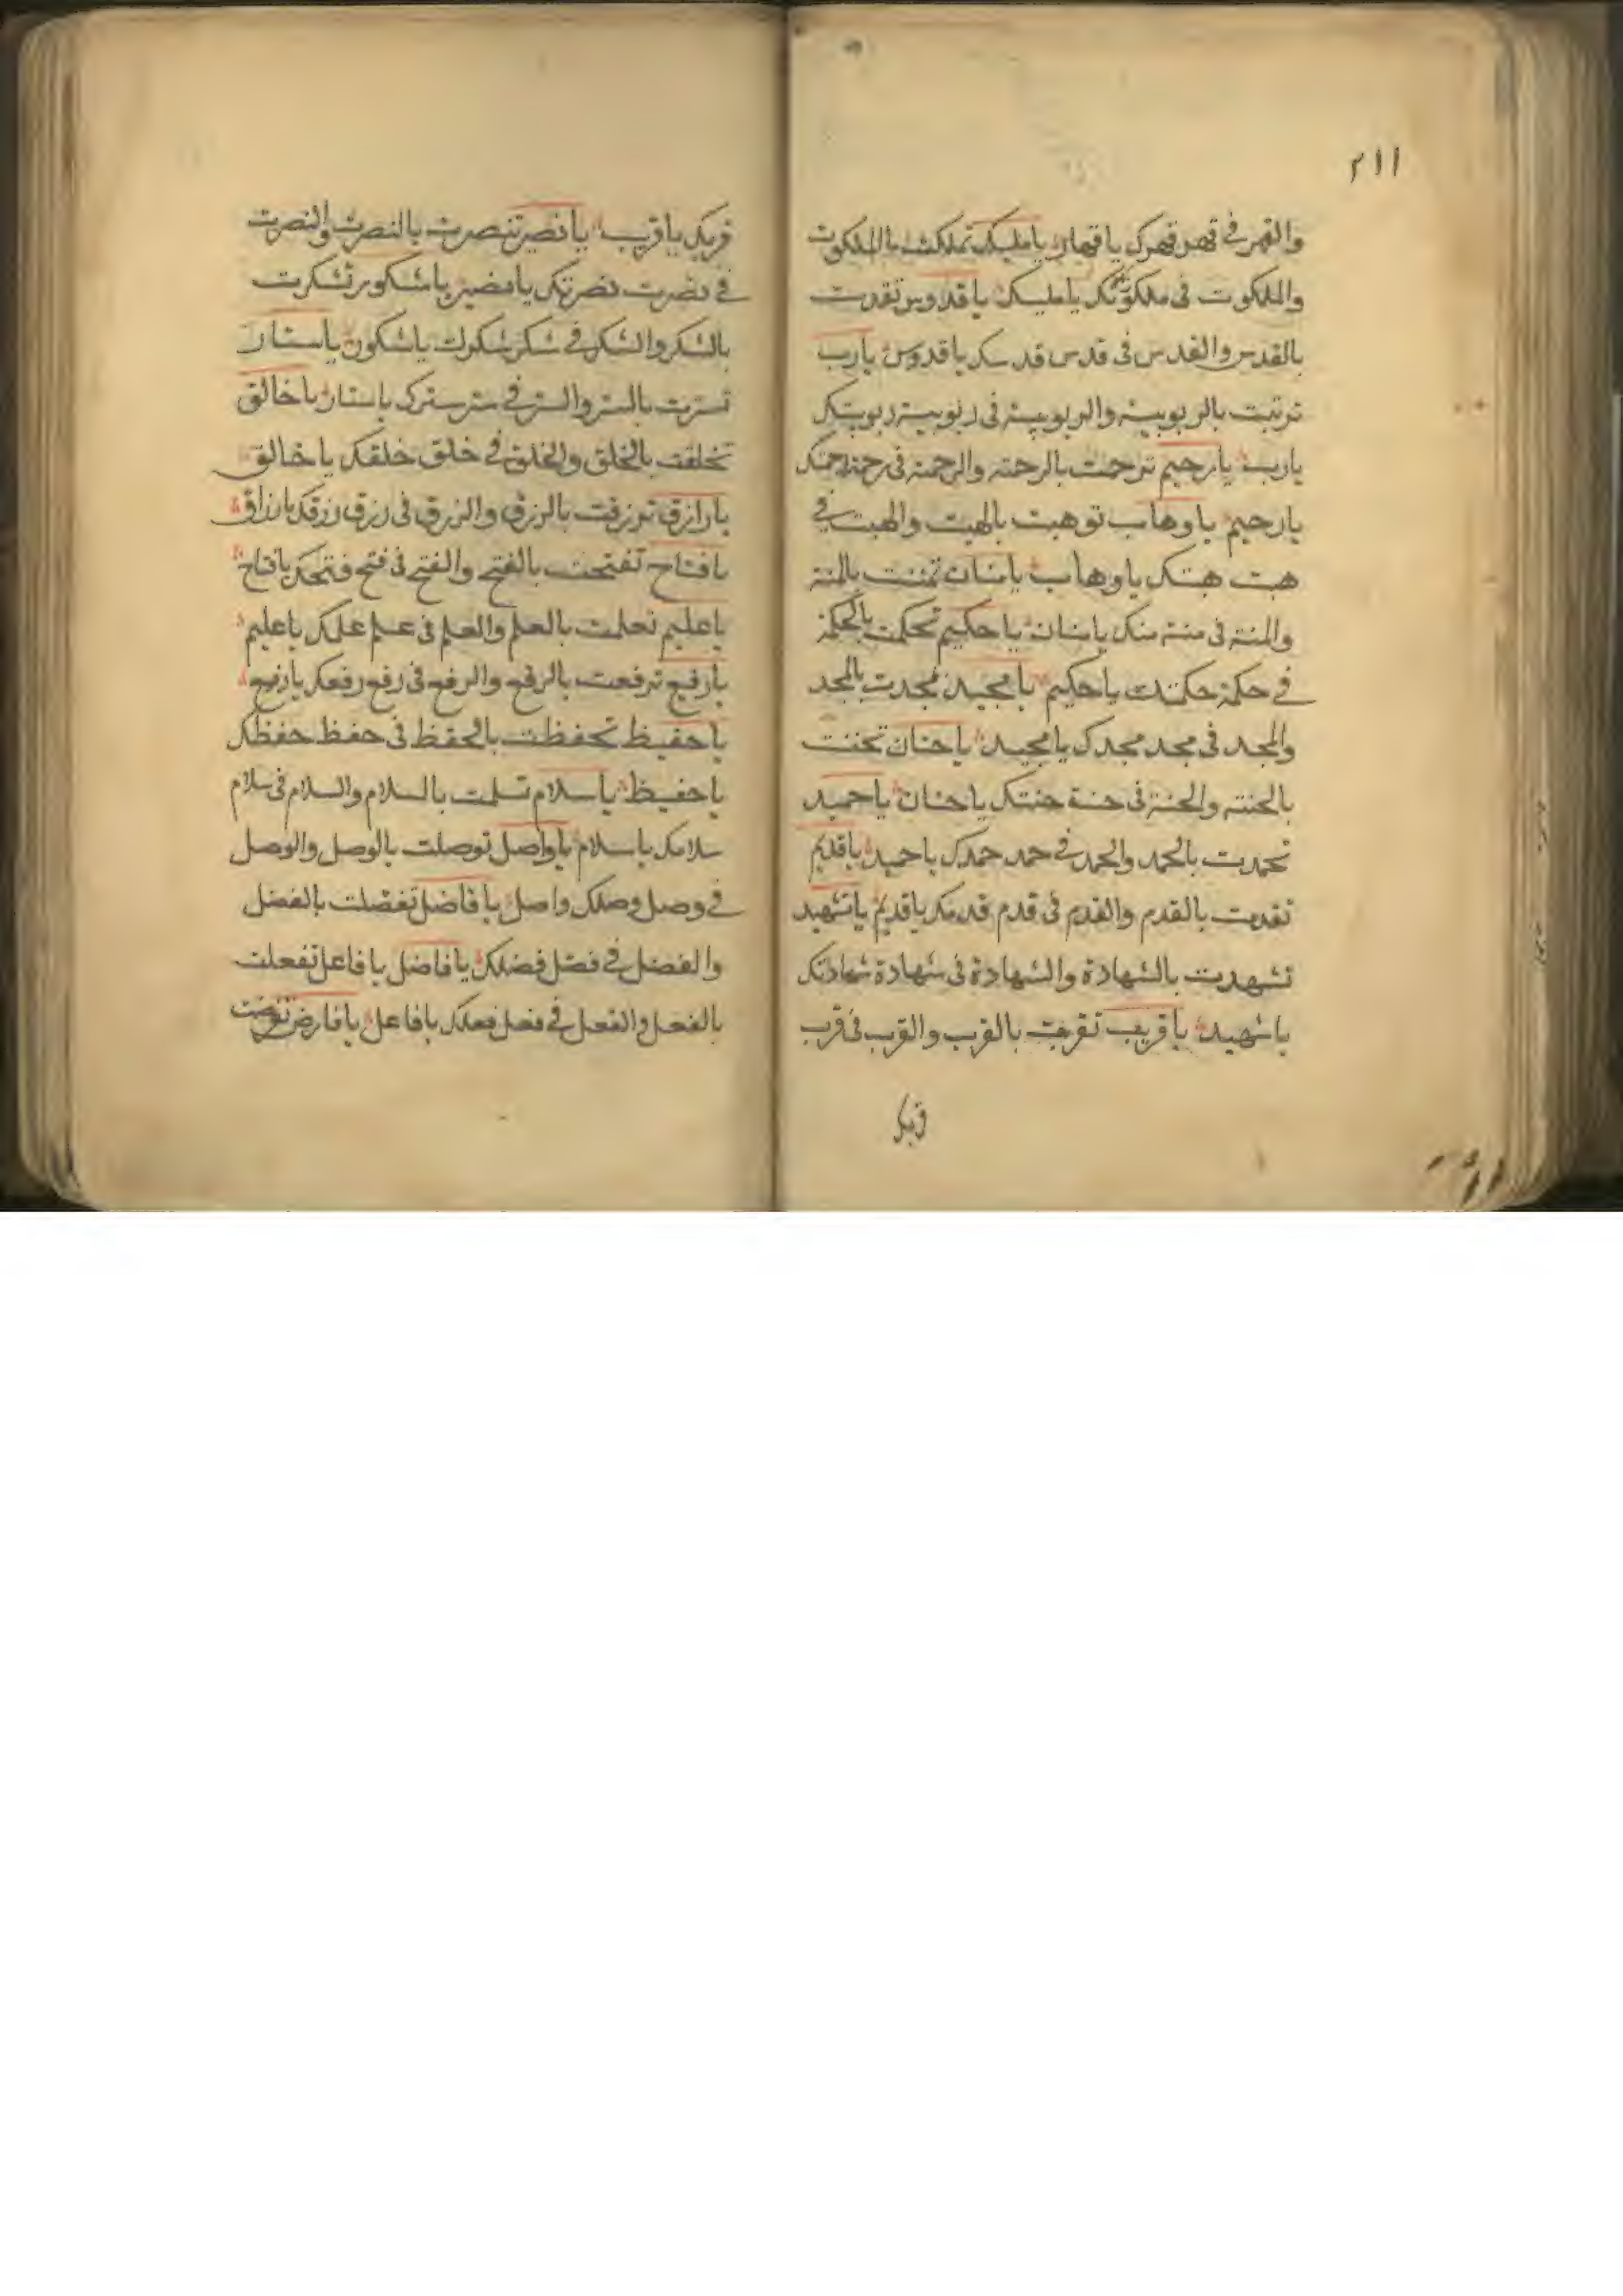 ٢١١
والقهر في قهر قهرك يا قهار يا مليك تملكت بالملكوت
والملكوت في ملكوتك يا مليك يا قدوس تقدست
بالقدس والقدس في قدس قدسك يا قدوس يارب
تربتت بالربوبية والربوبية في ربوبية ربوبيتك
يارب يا رحيم ترحمت بالرحمة والرحمة في رحمة رحمتك
يا رحيم يا وهاب توهبت بالهبت والهبت في
هبت هبتك يا وهاب يا منان تمننت بالمنة
والمنة في منة منتك يا منان يا حكيم تحكمت بالحكمة
في حكمة حكمتك يا حكيم يا مجيد تمجدت بالمجد
والمجد في مجد مجدك يا مجيد يا حنان تحننت
بالحنته والحنة في حنة حنتك يا حنان يا حميد
تحمدت بالحمد والحمد في حمد حمدك يا حميد يا قديم
تقدمت بالقدم والقدم في قدم قدمك يا قديم يا شهيد
تشهدت بالشهادة والشهادة في شهادة شهادتك
يا شهيد يا قريب تقربت بالقرب والقرب في قرب
قربك
قربك يا قريب يا نصير تنصرت بالنصرت والنصرت
في نصرت نصرتك يا نصير يا شكور تشكرت
بالشكر والشكر في شكر شكرك يا شكور يا ستار
تسترت بالستر والستر في ستر سترك يا ستار يا خالق
تخلقت بالخلق والخلق في خلق خلقك يا خالق
يا رازق ترزقت بالرزق والرزق في رزق رزقك يا رزاق
يا فتاح تفتحت بالفتح والفتح في فتح فتحك يا فتاح
يا عليم تعلمت بالعلم والعلم في علم علمك يا عليم
يا رفيع ترفعت بالرفع والرفع في رفع رفعك يا رفيع
يا حفيظ تحفظت بالحفظ في حفظ حفظك
يا حفيظ يا سلام تسلمت بالسلام والسلام في سلام
سلامك يا سلام يا واصل توصلت بالوصل والوصل
في وصل وصلك واصل يا فاضل تفضلت بالفضل
والفضل في فضل فضلك يا فاضل يا فاعل تفعلت
بالفعل والفعل في فعل فعلك يا فاعل يا فارض تفرضت